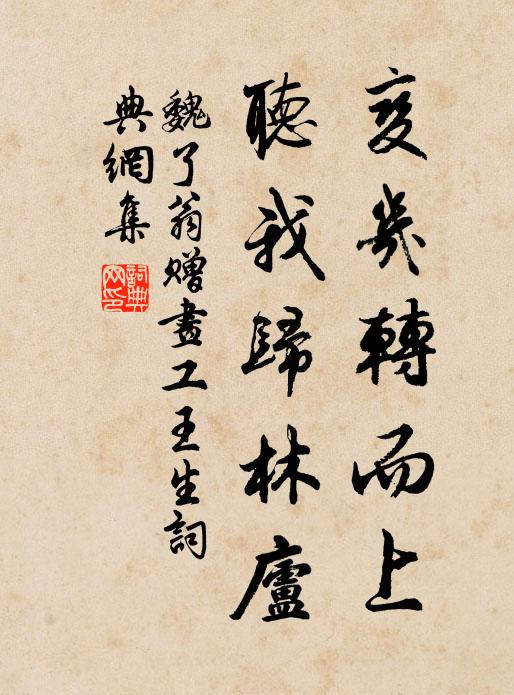 变几轉而上
聽我歸林廬
魏了翁贈畫工王生詞
典網集
詞典
网印